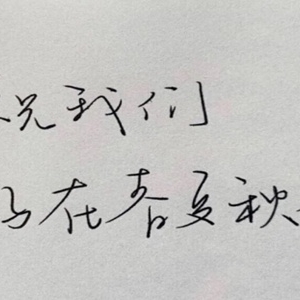 说我们
在春夏秋